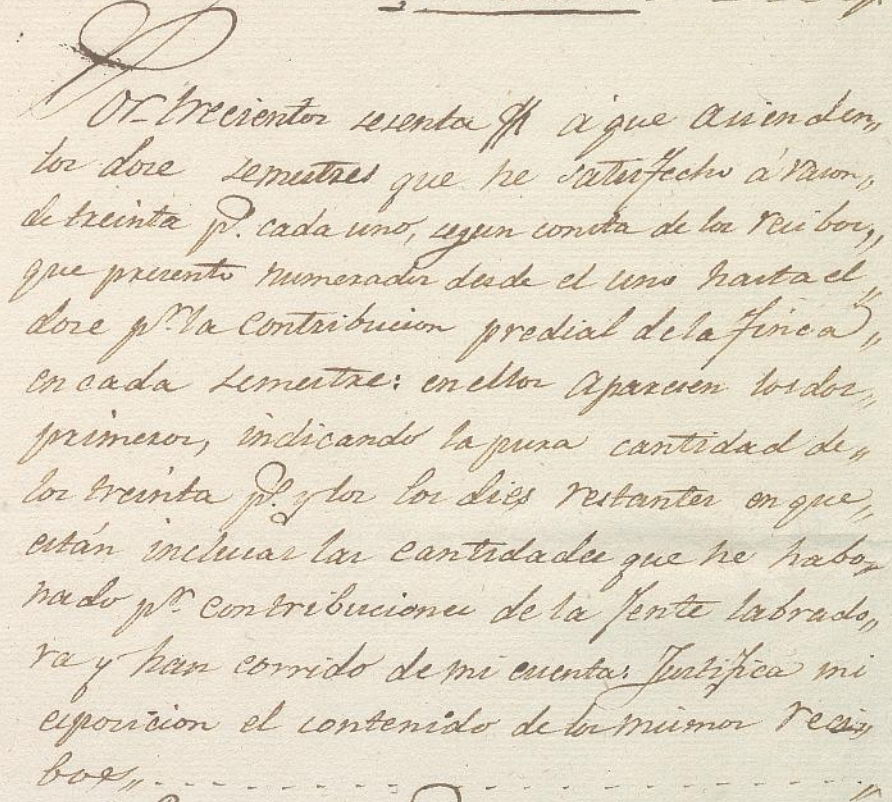 Por trecientos sesenta p$ á que asienden„
los dose semestres que he satisfecho á rason„
de treinta p.s cada uno, segun consta de los recibos„
que presento numerados desde el uno hasta el„
dose p.r la contribucion predial de la finca„
en cada semestre: en ellos aparesen los dos„
primeros, indicando la pura cantidad de„
los treinta p.s y los los dies restantes en que„
están inclusas las cantidades que he habo„
nado p.r contribuciones de la Jente labrado„
ra y han corrido de mi cuenta. Justifica mi
esposicion el contenido de los mismos reci„
bos„